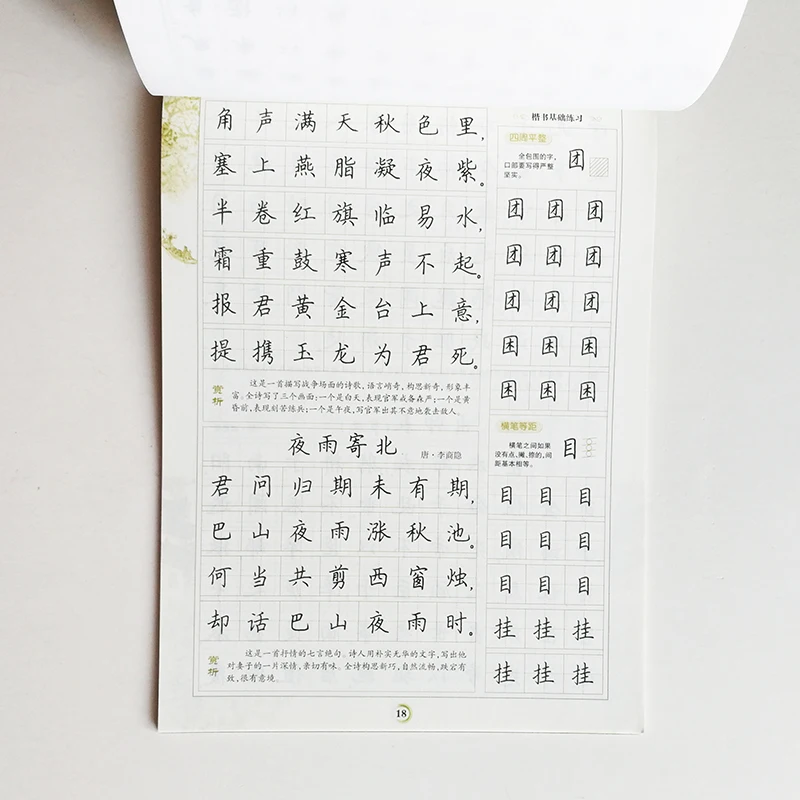 角声满天秋色里，
塞上燕脂凝夜紫。
半卷红旗临易水，
霜重鼓寒声不起。
报君黄金台上意，
提携玉龙为君死。
赏析
这是一首描写战争场面的诗歌，语言峭奇，构思新奇，形象丰
富。全诗写了三个画面：一个是白天，表现官军戒备森严；一个是黄
昏前，表现刻苦练兵；一个是午夜，写官军出其不意地袭击敌人。
夜雨寄北
唐·李商隐
君问归期未有期，
巴山夜雨涨秋池。
何当共剪西窗烛，
却话巴山夜雨时。
赏析
这是一首抒情的七言绝句。诗人用朴实无华的文字，写出他
对妻子的一片深情，亲切有味。全诗构思新巧，自然流畅，跌宕有
致，很有意境。
楷书基础练习
四周平整
全包围的字，
口部要写得严整
坚实。
团
团团团
团团团
团团团
困困困
困困困
横笔等距
横笔之间如果
没有点、撇、捺的，间
距基本相等。
目
目目目
目目目
目目目
挂挂挂
挂挂挂
18